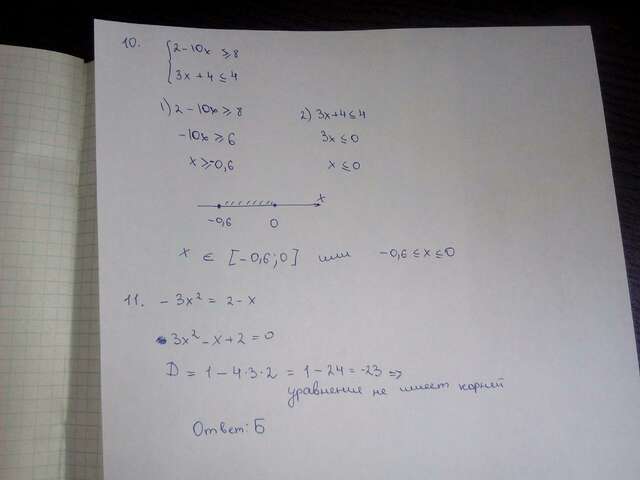 10. { 2-10x ≥ 8
3x + 4 ≤ 4
1) 2 - 10x ≥ 8 2) 3x+4 ≤ 4
-10x ≥ 6 3x ≤ 0
x ≥ -0,6 x ≤ 0
x
-0,6 0
x ∈ [-0,6 ; 0] или -0,6 ≤ x ≤ 0
11. - 3x² = 2 - x
3x² - x + 2 = 0
D = 1 - 4·3·2 = 1 - 24 = -23 =>
уравнение не имеет корней
Ответ: Б